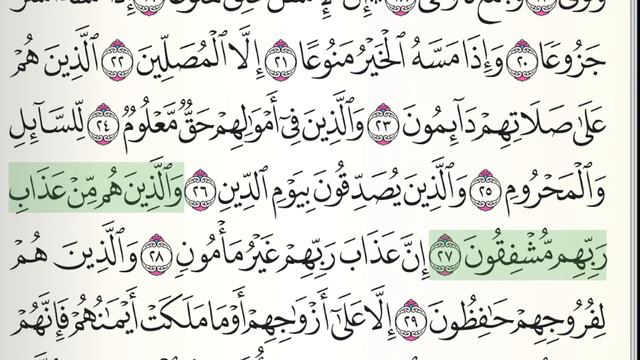 جَزُوعًا ٢٠ وَإِذَا مَسَّهُ ٱلْخَيْرُ مَنُوعًا ٢١ إِلَّا ٱلْمُصَلِّينَ ٢٢ ٱلَّذِينَ هُمْ
عَلَىٰ صَلَاتِهِمْ دَآئِمُونَ ٢٣ وَٱلَّذِينَ فِىٓ أَمْوَٰلِهِمْ حَقٌّ مَّعْلُومٌ ٢٤ لِّلسَّآئِلِ
وَٱلْمَحْرُومِ ٢٥ وَٱلَّذِينَ يُصَدِّقُونَ بِيَوْمِ ٱلدِّينِ ٢٦ وَٱلَّذِينَ هُم مِّنْ عَذَابِ
رَبِّهِم مُّشْفِقُونَ ٢٧ إِنَّ عَذَابَ رَبِّهِمْ غَيْرُ مَأْمُونٍ ٢٨ وَٱلَّذِينَ هُمْ
لِفُرُوجِهِمْ حَٰفِظُونَ ٢٩ إِلَّا عَلَىٰٓ أَزْوَٰجِهِمْ أَوْ مَا مَلَكَتْ أَيْمَٰنُهُمْ فَإِنَّهُمْ